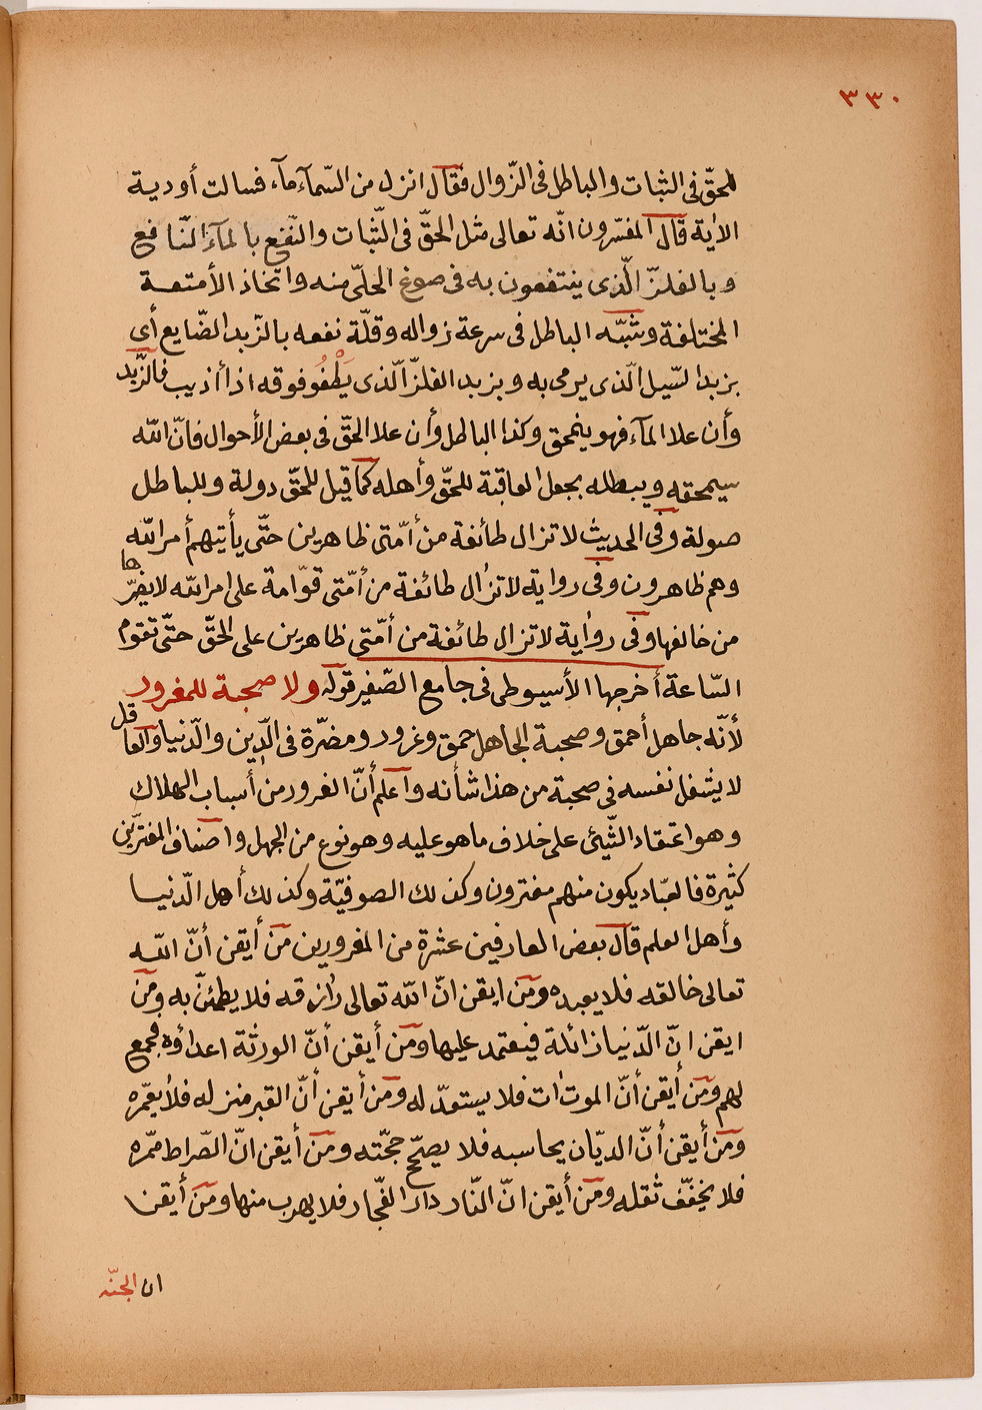 ٣٣٠
للحقّ فى الثبات والباطل فى الزّوال فقال انزل من السّمآء مآء فسالت أودية
الاٰية قال المفسّرون انّه تعالى مثل الحقّ فى الثّبات والنّفع بالمآء النّافع
وبالفلزّ الّذى ينتفعون به فى صوغ الحلّى منه واتّخاذ الأمتعة
المختلفة وشبّه الباطل فى سرعة زواله وقلّة نفعه بالزّبد الضّايع أى
بزبد السّيل الّذى يرمى به وبزبد الفلزّ الّذى يَطْفُو فوقه اذا أذيب فالزّبد
وأن علا المآء فهو ينمحق وكذا الباطل وأن علا الحقّ فى بعض الأحوال فانّ اللّه
سيمحقه ويبطله بجعل العاقبة للحقّ وأهله كما قيل للحقّ دولة وللباطل
صولة وفى الحديث لا تزال طائفة من أمّتى ظاهرين حتّى يأتيهم أمر اللّه
وهم ظاهرون وفى رواية لا تزال طائفة من أمّتى قوّامة على امر اللّه لا يضرّها
من خالفها وفى رواية لا تزال طائفة من أمّتى ظاهرين على الحقّ حتّى تقوم
السّاعة أخرجها الأسيوطى فى جامع الصّغير قوله ولا صحبة للمغرور
لأنّه جاهل أحمق وصحبة الجاهل حمق وغرور ومضرّة فى الّدين والّدنيا والعاقل
لا يشغل نفسه فى صحبة من هذا شأنه وأعلم أنّ الغرور من أسباب الهلاك
وهو اعتقاد الشّيئ على خلاف ما هو عليه وهو نوع من الجهل واصناف المغترّين
كثيرة فالعبّاد يكون منهم مغترون وكذلك الصوفيّة وكذلك أهل الّدنيا
وأهل العلم قال بعض العارفين عشرة من المغرورين من أيقن أنّ اللّه
تعالى خالقه فلا يعبده ومن ايقن انّ اللّه تعالى رازقه فلا يطمئنّ به ومن
ايقن انّ الّدنيا زائلة فيعتمد عليها ومن أيقن أنّ الورثة اعداؤه فجمع
لهم ومن أيقن أنّ الموت اٰت فلا يستعدّ له ومن أيقن أنّ القبر منزله فلا يعمّره
ومن أيقن أنّ الديّان يحاسبه فلا يصحّح حجّته ومن أيقن انّ الصّراط ممّره
فلا يخفّف ثقله ومن أيقن انّ النّار دار الفّجار فلا يهرب منها ومن أيقن
ان الجنّه